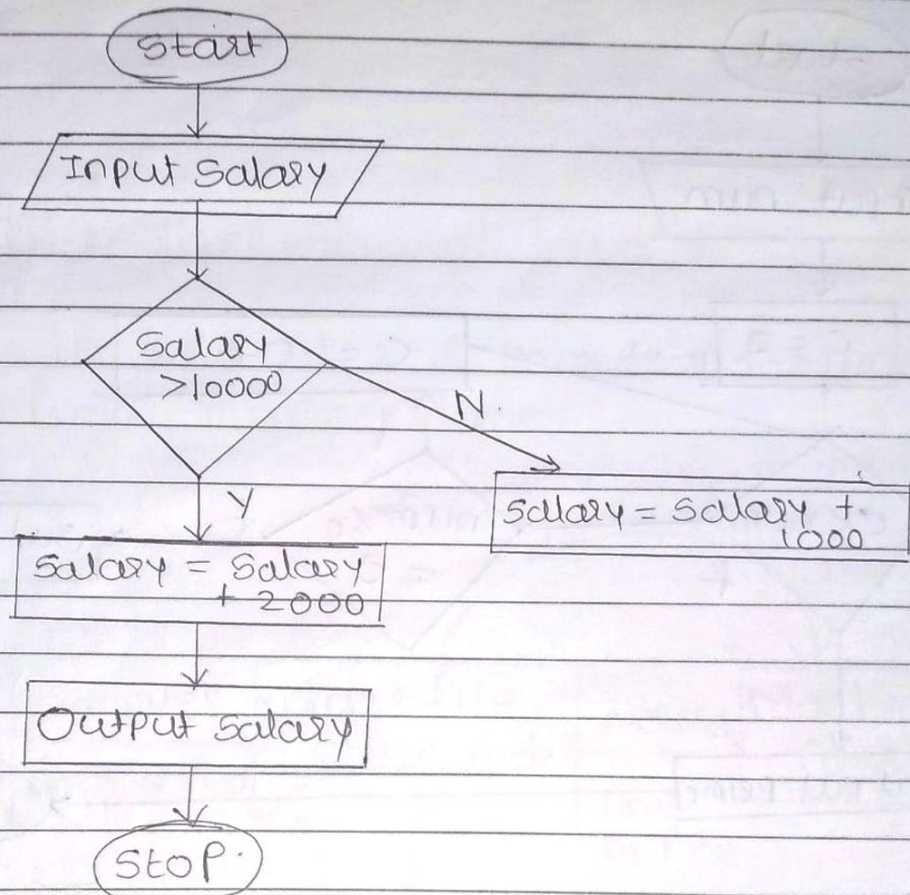 Start
Input Salary
Salary
>10000
N
Y
Salary = Salary +
1000
Salary = Salary
+ 2000
Output Salary
Stop.